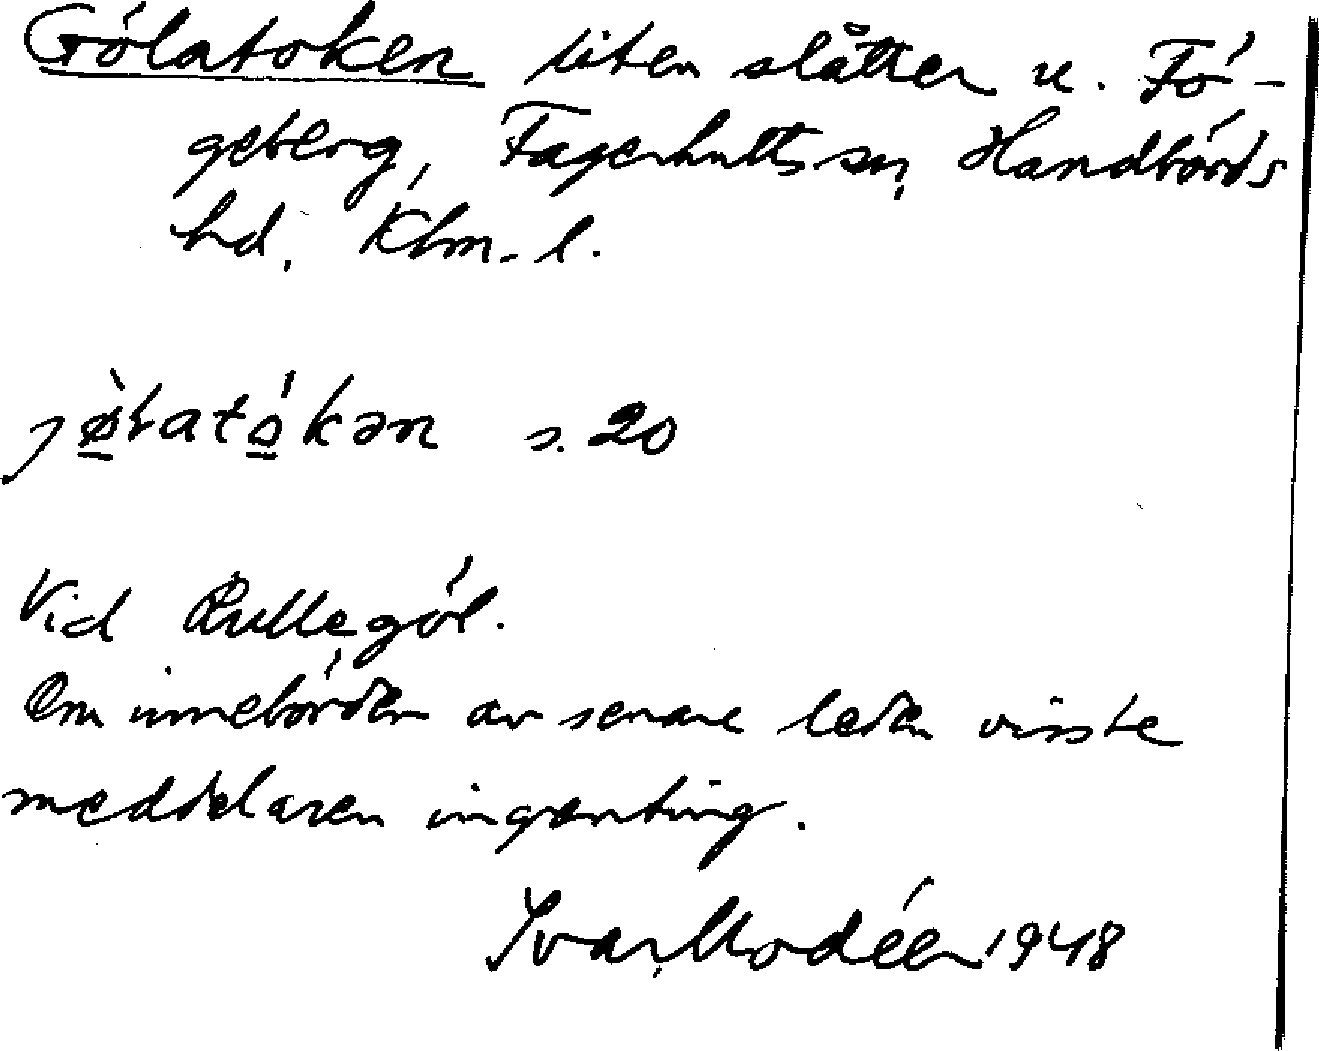 Gölatoken liten slåtter u. Fö-
geberg, Fagerhults sn, Handbörds
hd, Klm. l.
jø̀latókən s. 20
Vid Rullegöl.
Om innebörden av senare leden visste
meddelaren ingenting.
Ivar Modéer 1948